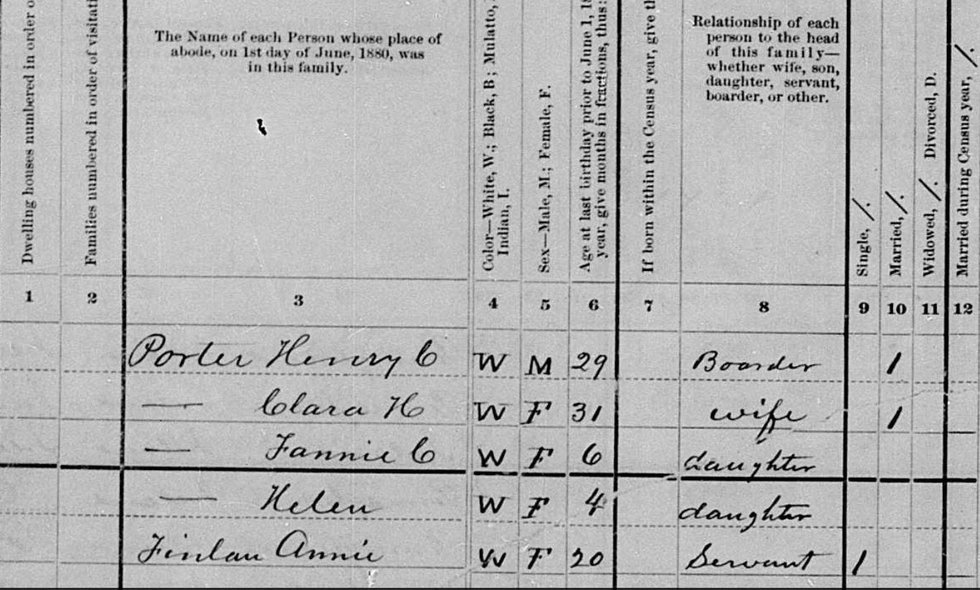 Dwelling houses numbered in order o
Families numbered in order of visitati
The Name of each Person whose place of
abode, on 1st day of June, 1880, was
in this family.
Color—White, W.; Black, B; Mulatto,
Indian, I.
Sex—Male, M.; Female, F.
Age at last birthday prior to June 1, 18
year, give months in fractions, thus:
If born within the Census year, give th
Relationship of each
person to the head
of this family—
whether wife, son,
daughter, servant,
boarder, or other.
Single, /.
Married, /.
Widowed, /. Divorced, D.
Married during Census year, /.
1 2 3 4 5 6 7 8 9 10 11 12
Porter Henry C W M 29 Boarder 1
— Clara H W F 31 wife 1
— Fannie C W F 6 daughter
— Helen W F 4 daughter
Finlau Annie W F 20 Servant 1